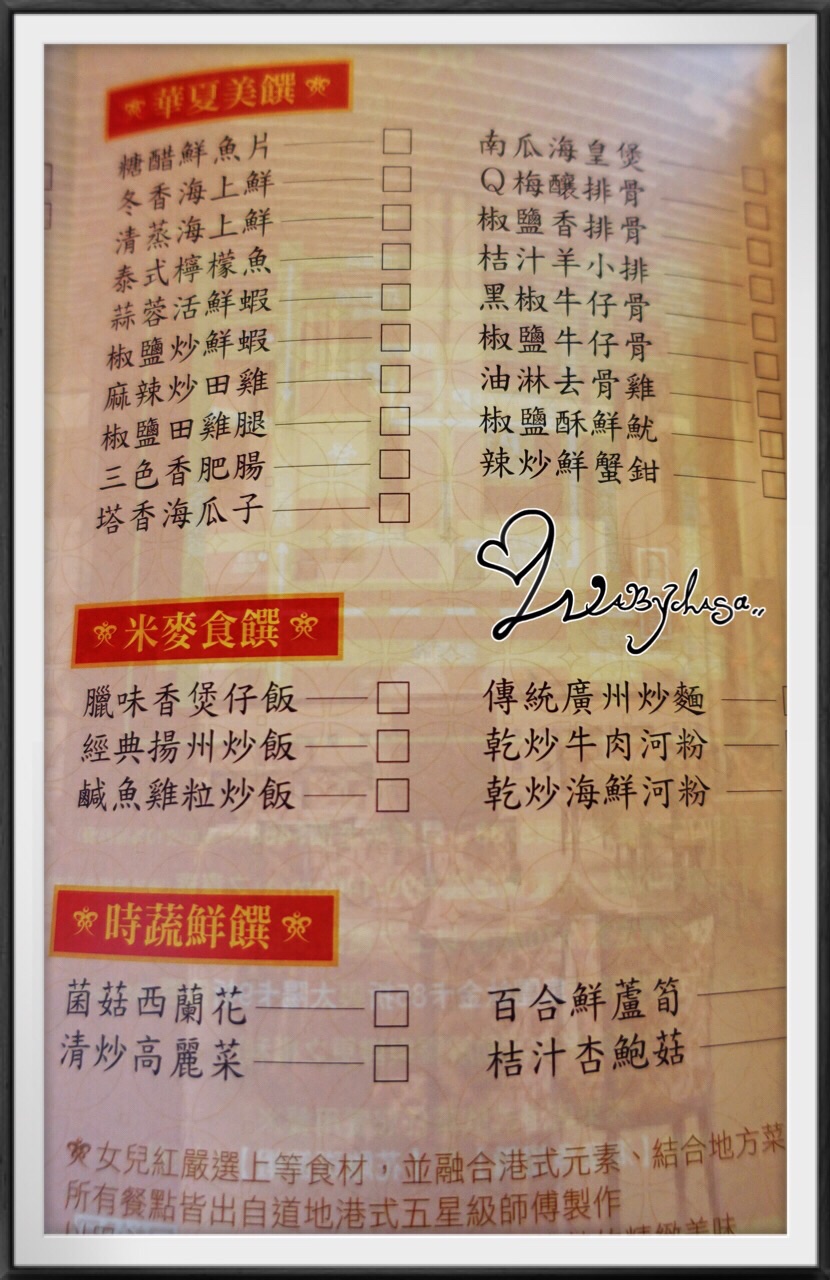 華夏美饌
糖醋鮮魚片
冬香海上鮮
清蒸海上鮮
泰式檸檬魚
蒜蓉活鮮蝦
椒鹽炒鮮蝦
麻辣炒田雞
椒鹽田雞腿
三色香肥腸
塔香海瓜子
南瓜海皇煲
Q梅釀排骨
椒鹽香排骨
桔汁羊小排
黑椒牛仔骨
椒鹽牛仔骨
油淋去骨雞
椒鹽酥鮮魷
辣炒鮮蟹鉗
米麥食饌
臘味香煲仔飯
經典揚州炒飯
鹹魚雞粒炒飯
傳統廣州炒麵
乾炒牛肉河粉
乾炒海鮮河粉
時蔬鮮饌
菌菇西蘭花
清炒高麗菜
百合鮮蘆筍
桔汁杏鮑菇
女兒紅嚴選上等食材，並融合港式元素、結合地方菜
所有餐點皆出自道地港式五星級師傅製作
精緻美味